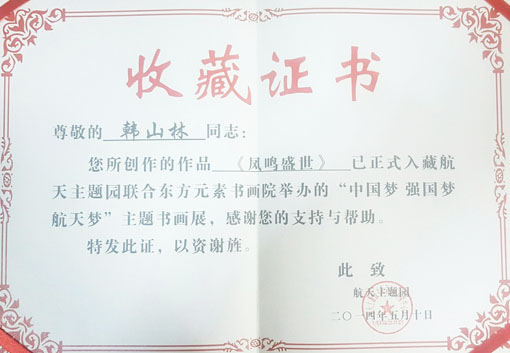 收藏证书
尊敬的 韩山林 同志：
您所创作的作品 《凤鸣盛世》 已正式入藏航
天主题园联合东方元素书画院举办的“中国梦 强国梦
航天梦”主题书画展，感谢您的支持与帮助。
特发此证，以资谢旌。
此 致
航天主题园
二〇一四年五月十日